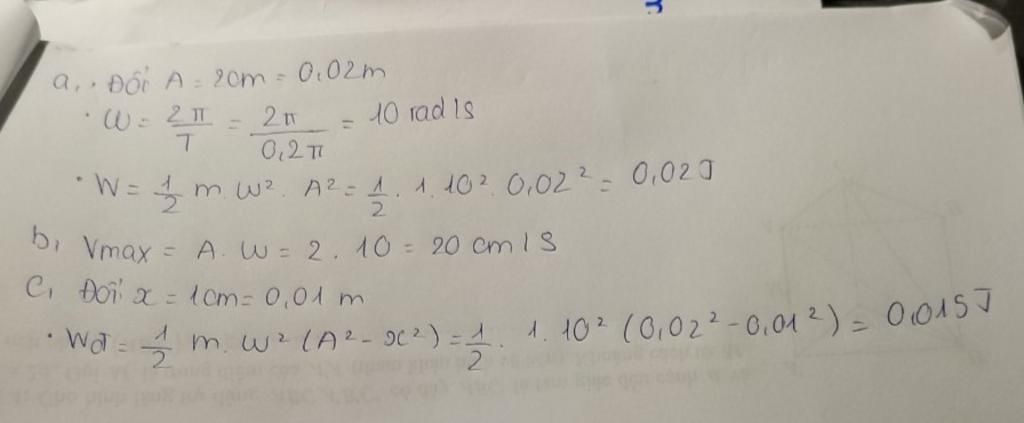 a, . Đổi A = 2cm = 0,02m
. ω = 2π/T = 2π/0,2π = 10 rad/s
. W = 1/2 m. ω². A² = 1/2 . 1. 10². 0,02² = 0,02J
b, Vmax = A. ω = 2. 10 = 20 cm/s
c, Đổi x = 1cm = 0,01 m
. Wđ = 1/2 m. ω² (A² - x²) = 1/2 . 1. 10² (0,02² - 0,01²) = 0,015J